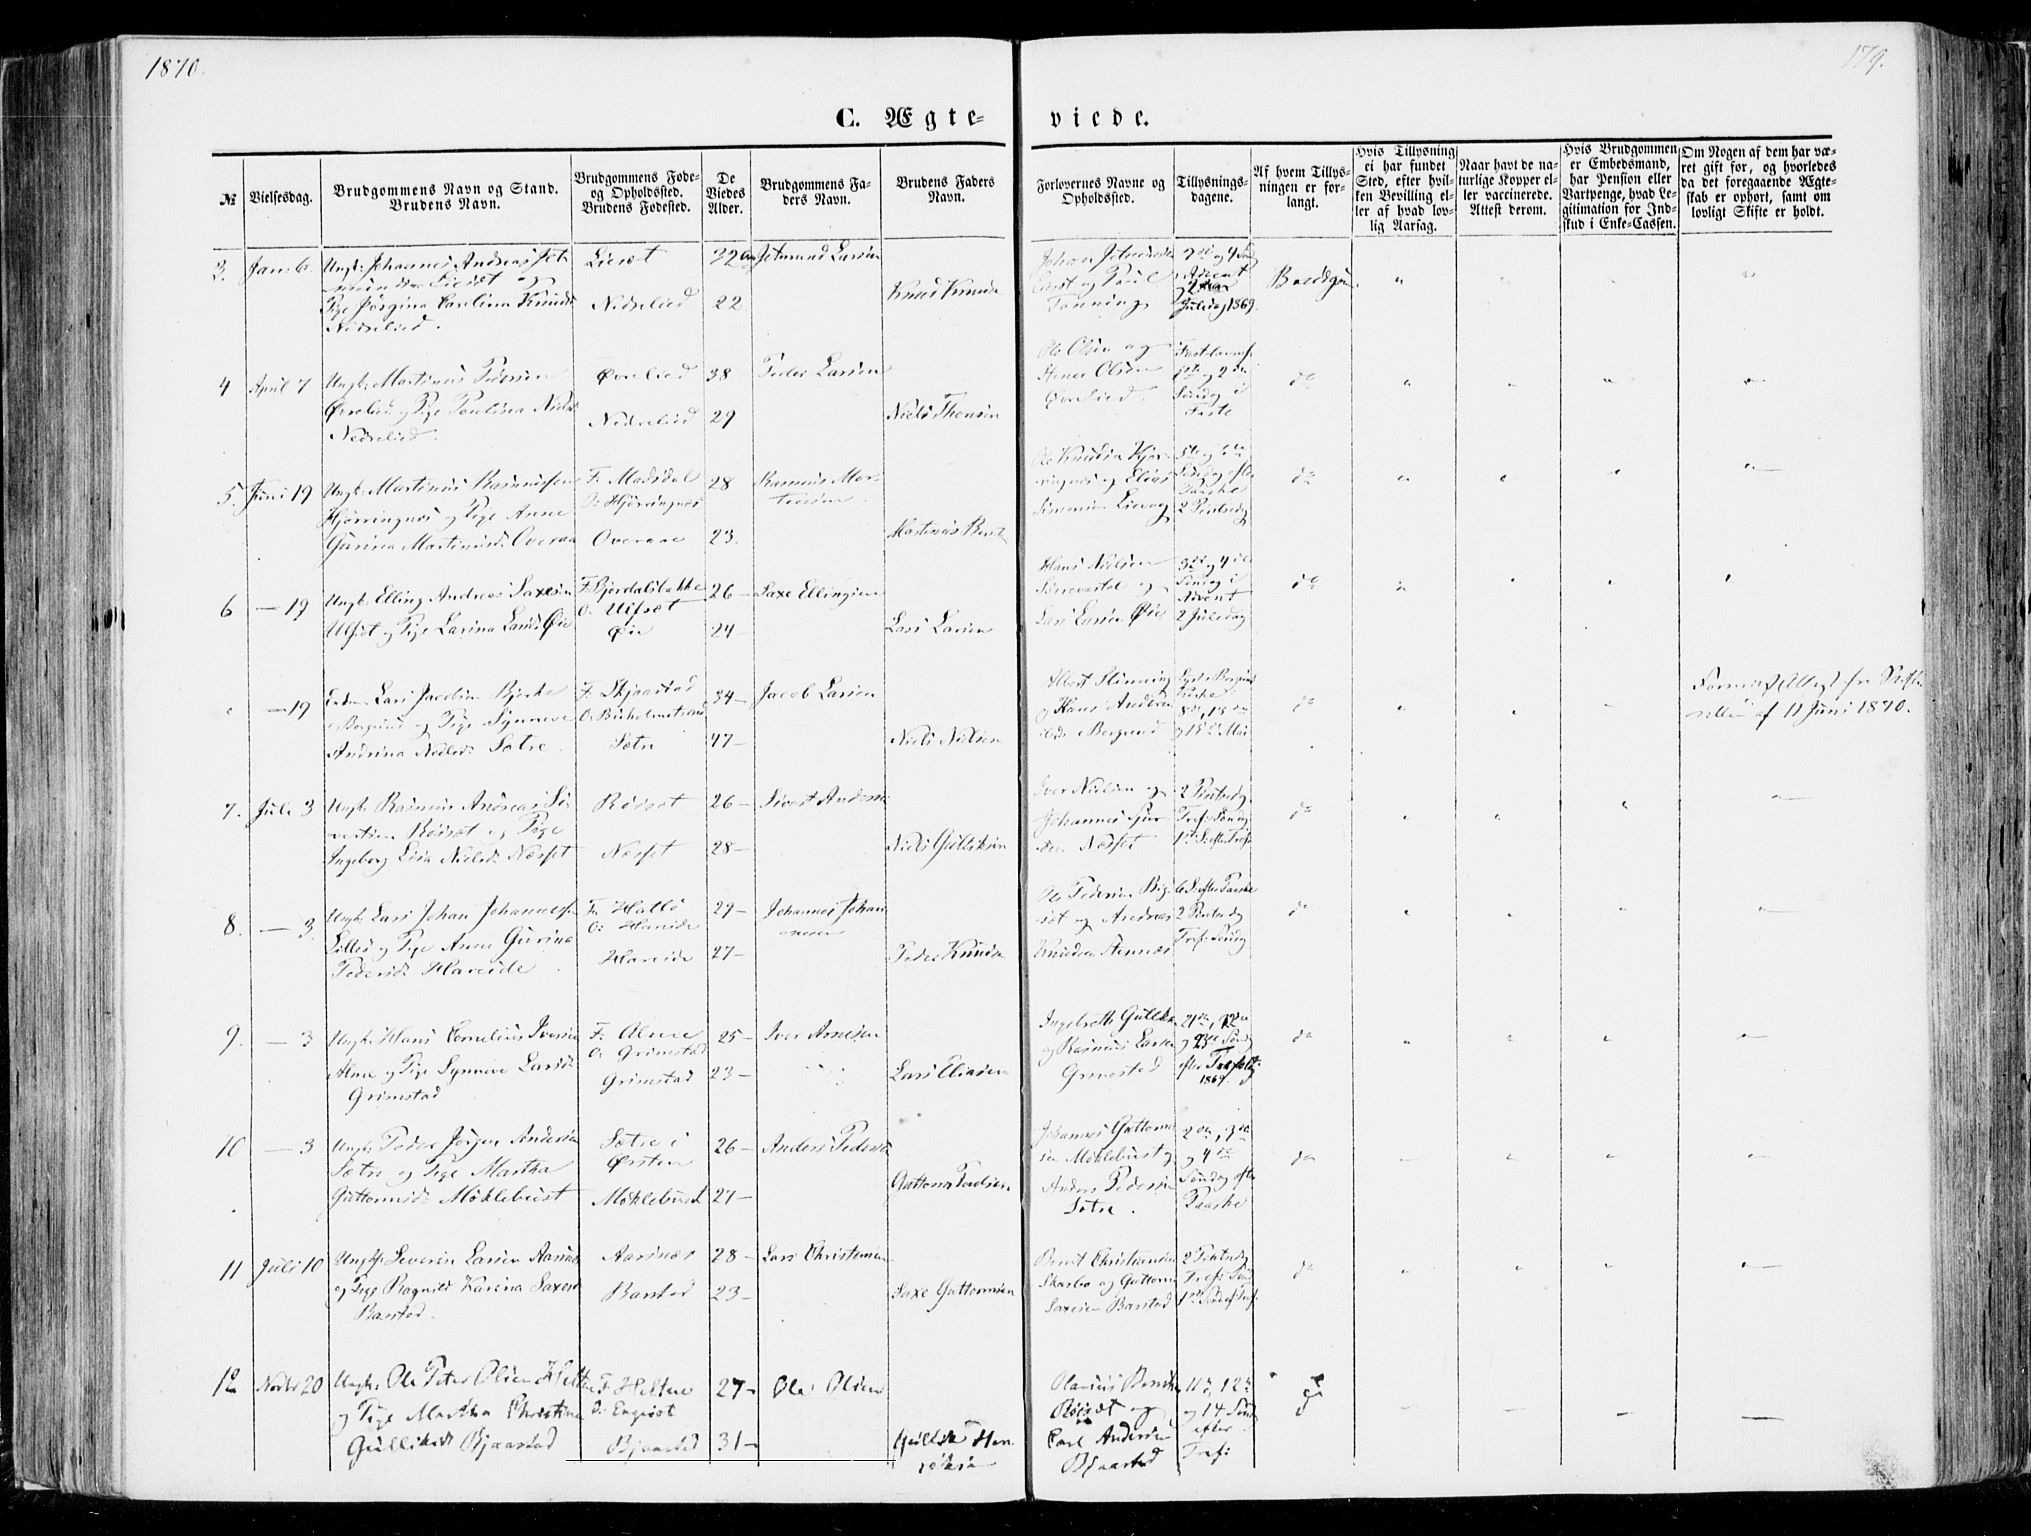 1870.
179.
C. Ægte-
viede.
№
Vielsesdag.
Brudgommens Navn og Stand.
Brudens Navn.
Brudgommens Føde-
og Opholdssted.
Brudens Fødested.
De
Viedes
Alder.
Brudgommens Fa-
ders Navn.
Brudens Faders
Navn.
Forlovernes Navne og
Opholdssted.
Tillysnings-
dagene.
Af hvem Tillys-
ningen er for-
langt.
Hvis Tillysning
ei har fundet
Sted, efter hvil-
ken Bevilling el-
ler af hvad lov-
lig Aarsag.
Naar havt de na-
turlige Kopper el-
ler vaccinerede.
Attest derom.
Hvis Brudgommen
er Embedsmand,
har Pension eller
Vartpenge, hvad Le-
gitimation for Ind-
skud i Enke-Cassen.
Om Nogen af dem har væ-
ret gift før, og hvorledes
da det foregaaende Ægte-
skab er ophørt, samt om
lovligt Skifte er holdt.
3. Jan: 6.
Ungk: Johannes Andreas Jet-
mundsen Lieset og
Pige Jørgina Paulina Knuds
Nedrelied.
Lieset
Nedrelied
32
22
Jetmund Larsen
Knud Knudsen
Johan Jetmundsen
Lieset og Paul
Tonning
3die og 4 Sønd
Advent
Juledag 1869.
Brudgom.
4 April 7
Ungk: Martinus Pedersen
Øvrelied og Pige Paulina Niels
Nedrelied.
Øvrelied
Nedrelied
38
29
Peder Larsen
Niels Thensen
Ole Olsen og
Olsen
Øvrelied.
Fastelavns
1ste og 2den
Søndag i
Faste
do
5. Juni 19
Ungk: Martinus Rasmussen
Hjørringnes og Pige Anne
Gurina Martinusd: Overaa
F: Madsdal
O: Hjørringnes
Overaae
28
23.
Rasmus Mor-
tensen.
Martinus Bernt
Ole Knudsen Hjør-
ringnes og Elias
Simensen Lievog
5te og 6te
Søndag efter
Paaske
2 Pintsedg
do
6 — 19
Ungk: Elling Andreas Saxesen
Ulfset og Pige Larina Larsd: Øie
F: Bjørdalsbakke
O: Ulfsæt
Øie
26 —
24 —
Saxe Ellingsen
Lars Larsen
Hans Nielsen
og
Lars Larsen Øie
3die og 4de
Søndag i
Advent
2 Juledag
do
— 19
Lars Jacobsen Bjerke
i Borgund og Pige Synneve
Andrina Nielsd: Sætre.
F: Skjaastad
Sætre
34 —
47 —
Jacob Larsen
Niels Nielsen
Albert Slinning
og Hans Andersen
Borgund
Lyst i Borgund
Kirke
8de, 15de
do
Forevist Attest fra Skifte-
retten af 11 Juni 1870.
7. Juli 3
Ungk: Rasmus Andreas Si-
vertsen Røiset og Pige
Ingeborg Lisa Nielsd: Næsset
Røiset
Næsset
26 —
28 —
Sivert Anders
Niels Gulliksen
Iver Nielsen og
Johannes
Næsset
2 Pintsedg
Tref: Søndg
1ste S: efter Tref:
do
8. — 3.
Ungk: Lars Johan Johannesen
og Pige Anne Gurina
Pedersd: Hareide
F: Hatlø
O: Hareide
Hareide
29 —
27 —
Johannes Johan
nesen
Peder Knudsen
Ole Pedersen
og Andreas
Knudsen
6 S: efter Paaske
2 Pintsedg
Tref: Søndg
do
9. — 3
Ungk: Hans Cornelius Iversen
Alme og Pige Synneve Larsd:
Grimstad
F: Alme
O: Grimstad
Grimstad
25 —
23 —
Iver Arnesen
Lars Eliasen
Ingebreth
og Rasmus Larsen
Grimstad
21de, 22de
og 23de Sønd
efter Trefoldg:
1869.
do
10 — 3
Ungk: Peder Jørgen Andersen
Sætre og Pige Martha
Guttormsd: Møklebust
Sætre i
Ørsten
Møklebust
26 —
27 —
Anders Peders
Guttorm Poulsen
Johannes Guttorm
sen Møklebust og
Anders Pedersen
Sætre.
2den, 3die
og 4de
Søndag efter
Paaske
do
11 Juli 10
Ungk: Severin Larsen Aarsnes
og Pige Ragnild Karina Saxesd
Barstad.
Aarsnæs
Barstad
28 —
23 —
Lars Christensen
Saxe Guttormsen
Bernt Christiansen
Skarbø og Guttorm
Saxesen Barstad
2 Pintsedg
Tref: Sønd
1ste Søndg eft Tref:
do
12 Novbr 20
Ungk: Ole Peter Olsen Heltne
og Pige Martha Christina
Gulliksd: Bjaastad
F: Heltne
O: Engeset
Bjaastad
27 —
31 —
Ole Olsen
Gullik Hen-
riksen
Olarius
Røiset og
Carl Andersen
Bjaastad
11te, 12te
og 14 Sønd
efter
Tref: